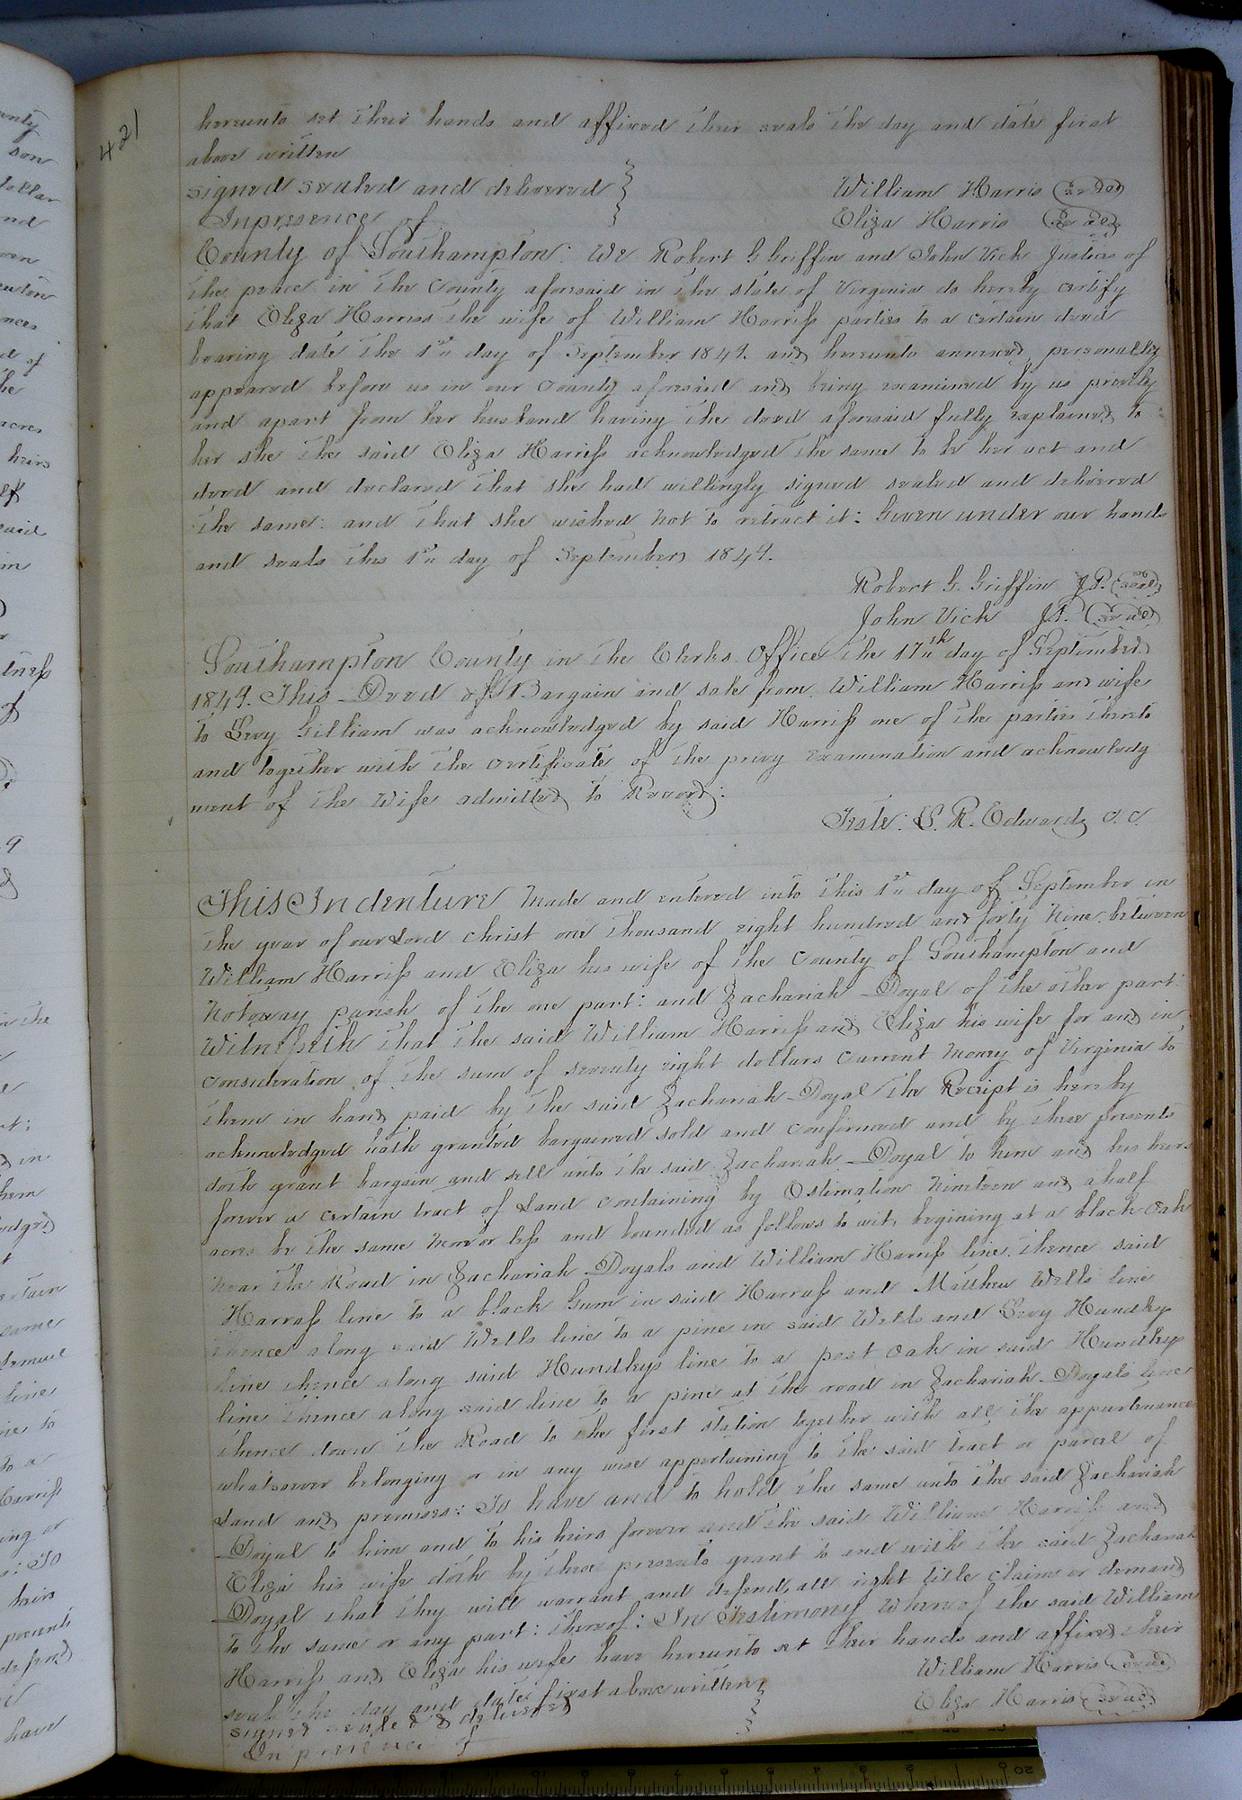 421
hereunto set their hands and affixed their seals the day and date first
above written
signed sealed and delivered
William Harris (sealed)
Inpresence of
Eliza Harris (sealed)
County of Southampton: We Robert G Griffin and John Vick Justices of
the peace in the County aforesaid in the state of Virginia do hereby certify
that Eliza Harriss the wife of William Harriss parties to a certain deed
bearing date the 1st day of September 1849. and hereunto annexed, personally
appeared before us in our County aforesaid and being examined by us privily
and apart from her husband having the deed aforesaid fully explained to
her she the said Eliza Harriss acknowledged the same to be her act and
deed and declared that she had willingly signed sealed and delivered
the same: and that she wished not to retract it: Given under our hands
and seals this 1st day of September 1849.
Robert G. Griffin J.P. (seal)
John Vick J.P. (seal)
Southampton County in the Clerks Office the 17th day of September
1849. This Deed of Bargain and sale from William Harriss and wife
to Levy Gilliam was acknowledged by said Harriss one of the parties thereto
and together with the certificate of the privy examination and acknowledg
ment of the Wife admitted to Record:
Teste: L. R. Edwards c.c.
This Indenture Made and entered into this 1st day of September in
the year of our Lord Christ one thousand eight hundred and forty Nine. between
William Harriss and Eliza his wife of the County of Southampton and
Notoway parish of the one part: and Zachariah Doyal of the other part:
Witnesseth that the said William Harriss and Eliza his wife for and in
consideration of the sum of seventy eight dollars Current Money of Virginia to
them in hand paid by the said Zachariah Doyal the Receipt is hereby
acknowledged hath granted bargained sold and confirmed and by these presents
doth grant bargain and sell unto the said Zachariah Doyal to him and his heirs
forever a certain tract of Land containing by Estimation Nineteen and a half
acres be the same More or less and bounded as follows to wit, begining at a black Oak
near the Road in Zachariah Doyals and William Harriss line. thence said
Harrass line to a black Gum in said Harrass and Matthew Wells line
thence along said Wells line to a pine in said Wells and Levy Hundley
line thence along said Hundleys line to a post Oak in said Hundleys
line thence along said line to a pine at the road in Zachariah Doyals line
thence down the Road to the first station together with all the appurtenances
whatsoever belonging or in any wise appertaining to the said tract or parcel of
Land and premises: To have and to hold the same unto the said Zachariah
Doyal to him and to his heirs forever and the said William Harriss and
Eliza his wife doth by these presents grant to and with the said Zachariah
Doyal that they will warrant and defend, all right title claim or demand
to the same or any part: thereof: In Testimony Whereof the said William
Harriss and Eliza his wife have hereunto set their hands and affixed their
seals the day and date first above written
William Harris (sealed)
signed sealed & delivered
Eliza Harris (sealed)
In presence of